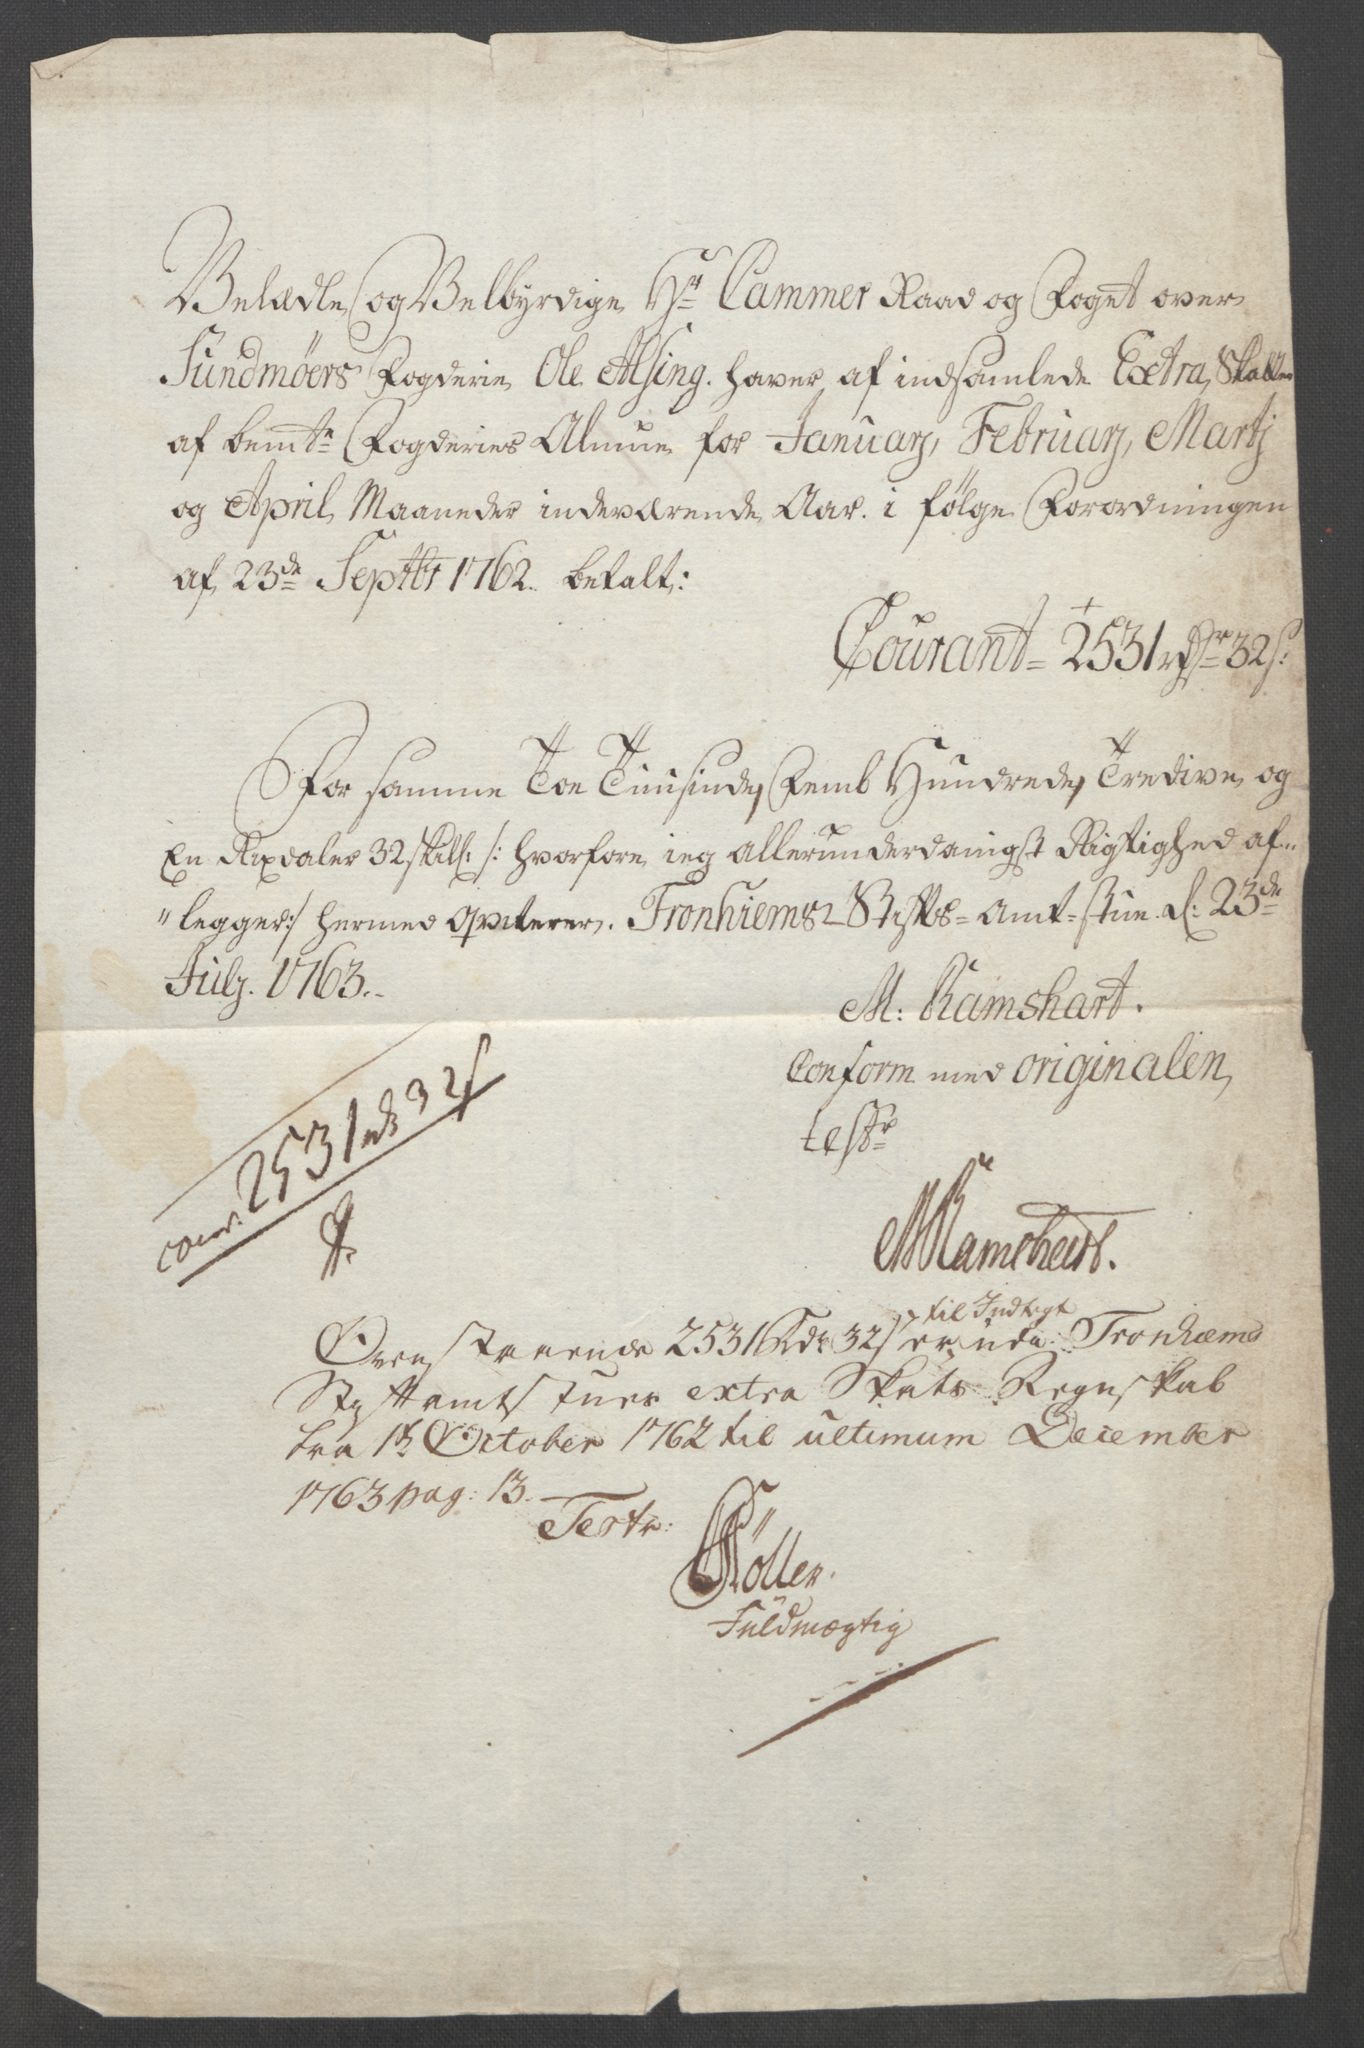 Velædle og Velbyrdige Hr Cammer Raad og Foget over
Sundmöers Fogderie Ole Alsing. haver af indsamlede Extra Skatter
af bemte Fogderies Almue for Januarj, Februarj, Martj
og April Maaneder indeværende Aar. i følge Forordningen
af 23de Septbr 1762. betalt:
Courant = 2531 rdr 32 s:
For samme Toe Tuusinde, Femb Hundrede, Tredive og
En Rixdaler 32 skill: /: hvorfore ieg allerunderdanigst Rigtighed af=
"legger :/ hermed qviterer. Tronhiems Stifts = Amt = stue d: 23de
Julj. 1763.
M: Ramshart.
Conform med originalen,
test
MRamshart.
cour. 2531 rd 32 s
Ovenstaaende 2531 Rdr 32 s er til Indtegt udi Tronhiems
Stiftamtstues extra Skats Regnskab
fra 1te October 1762 til ultimum December
1763 pag: 13.
Testr:
Köller.
Fuldmægtig